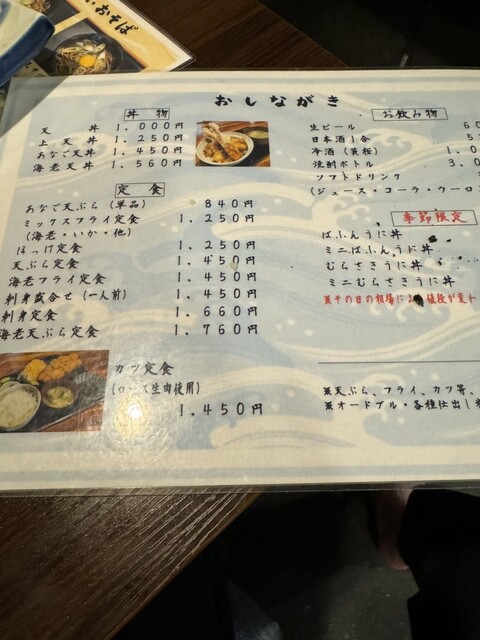 いおそば
おしながき
丼 物
天 丼 1.000円
上 天 丼 1.250円
あなご天丼 1.450円
海老天丼 1.560円
定 食
あなご天ぷら(単品) 840円
ミックスフライ定食 1.250円
(海老・いか・他)
ほっけ定食 1.250円
天ぷら定食 1.450円
海老フライ定食 1.450円
刺身盛合せ(一人前) 1.450円
刺身定食 1.660円
海老天ぷら定食 1.760円
カツ定食
(ロース生肉使用)
1.450円
お飲み物
生ビール 60
日本酒1合 5
冷酒(黄桜) 1.0
焼酎ボトル 3.0
ソフトドリンク
(ジュース・コーラ・ウーロ
季節限定
ばふんうに丼
ミニばふんうに丼
むらさきうに丼
ミニむらさきうに丼
※その日の相場によ 値段が変
※天ぷら、フライ、カツ等、
※オードブル・各種仕出し